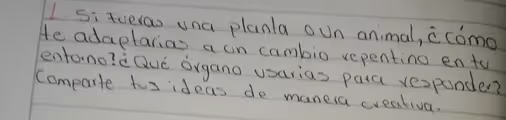 1 Si fueras una planta o un animal, ¿cómo
te adaptarias a un cambio repentino en tu
entorno? ¿Qué órgano usarias para responder?
Comparte tus ideas de manera creativa.